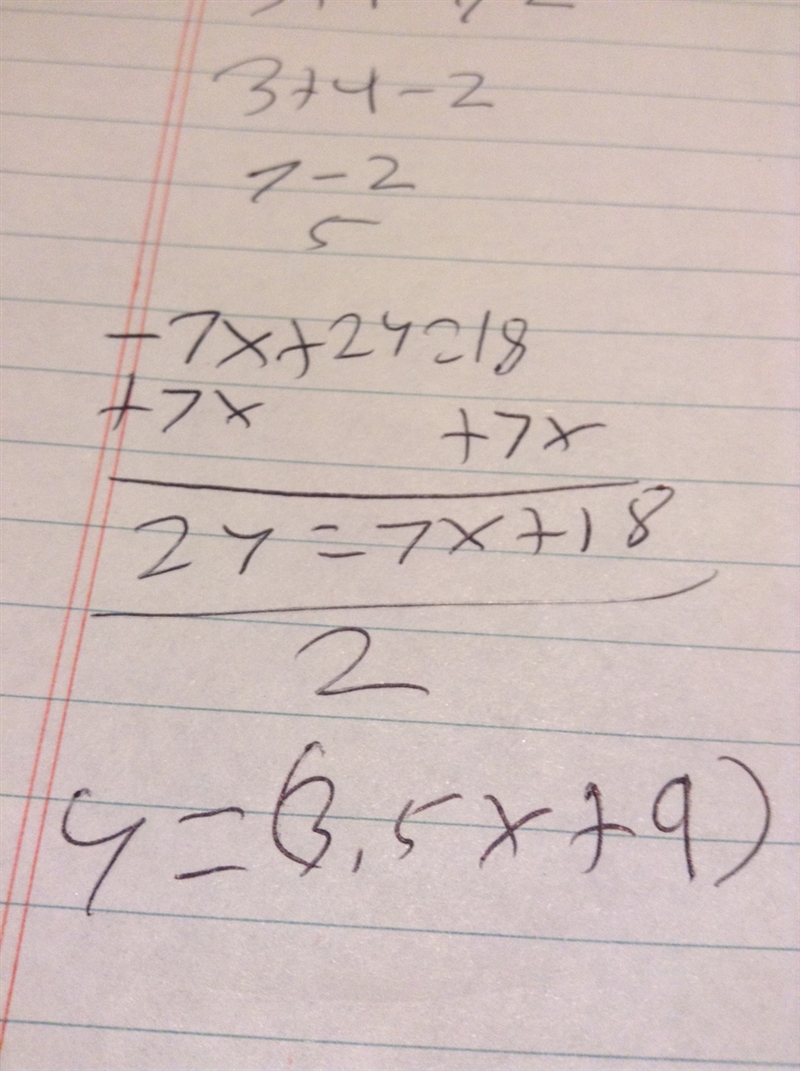 3+4-2
7-2
5
-7x+2y=18
+7x +7x
2y=7x+18
2
y=(3.5x+9)